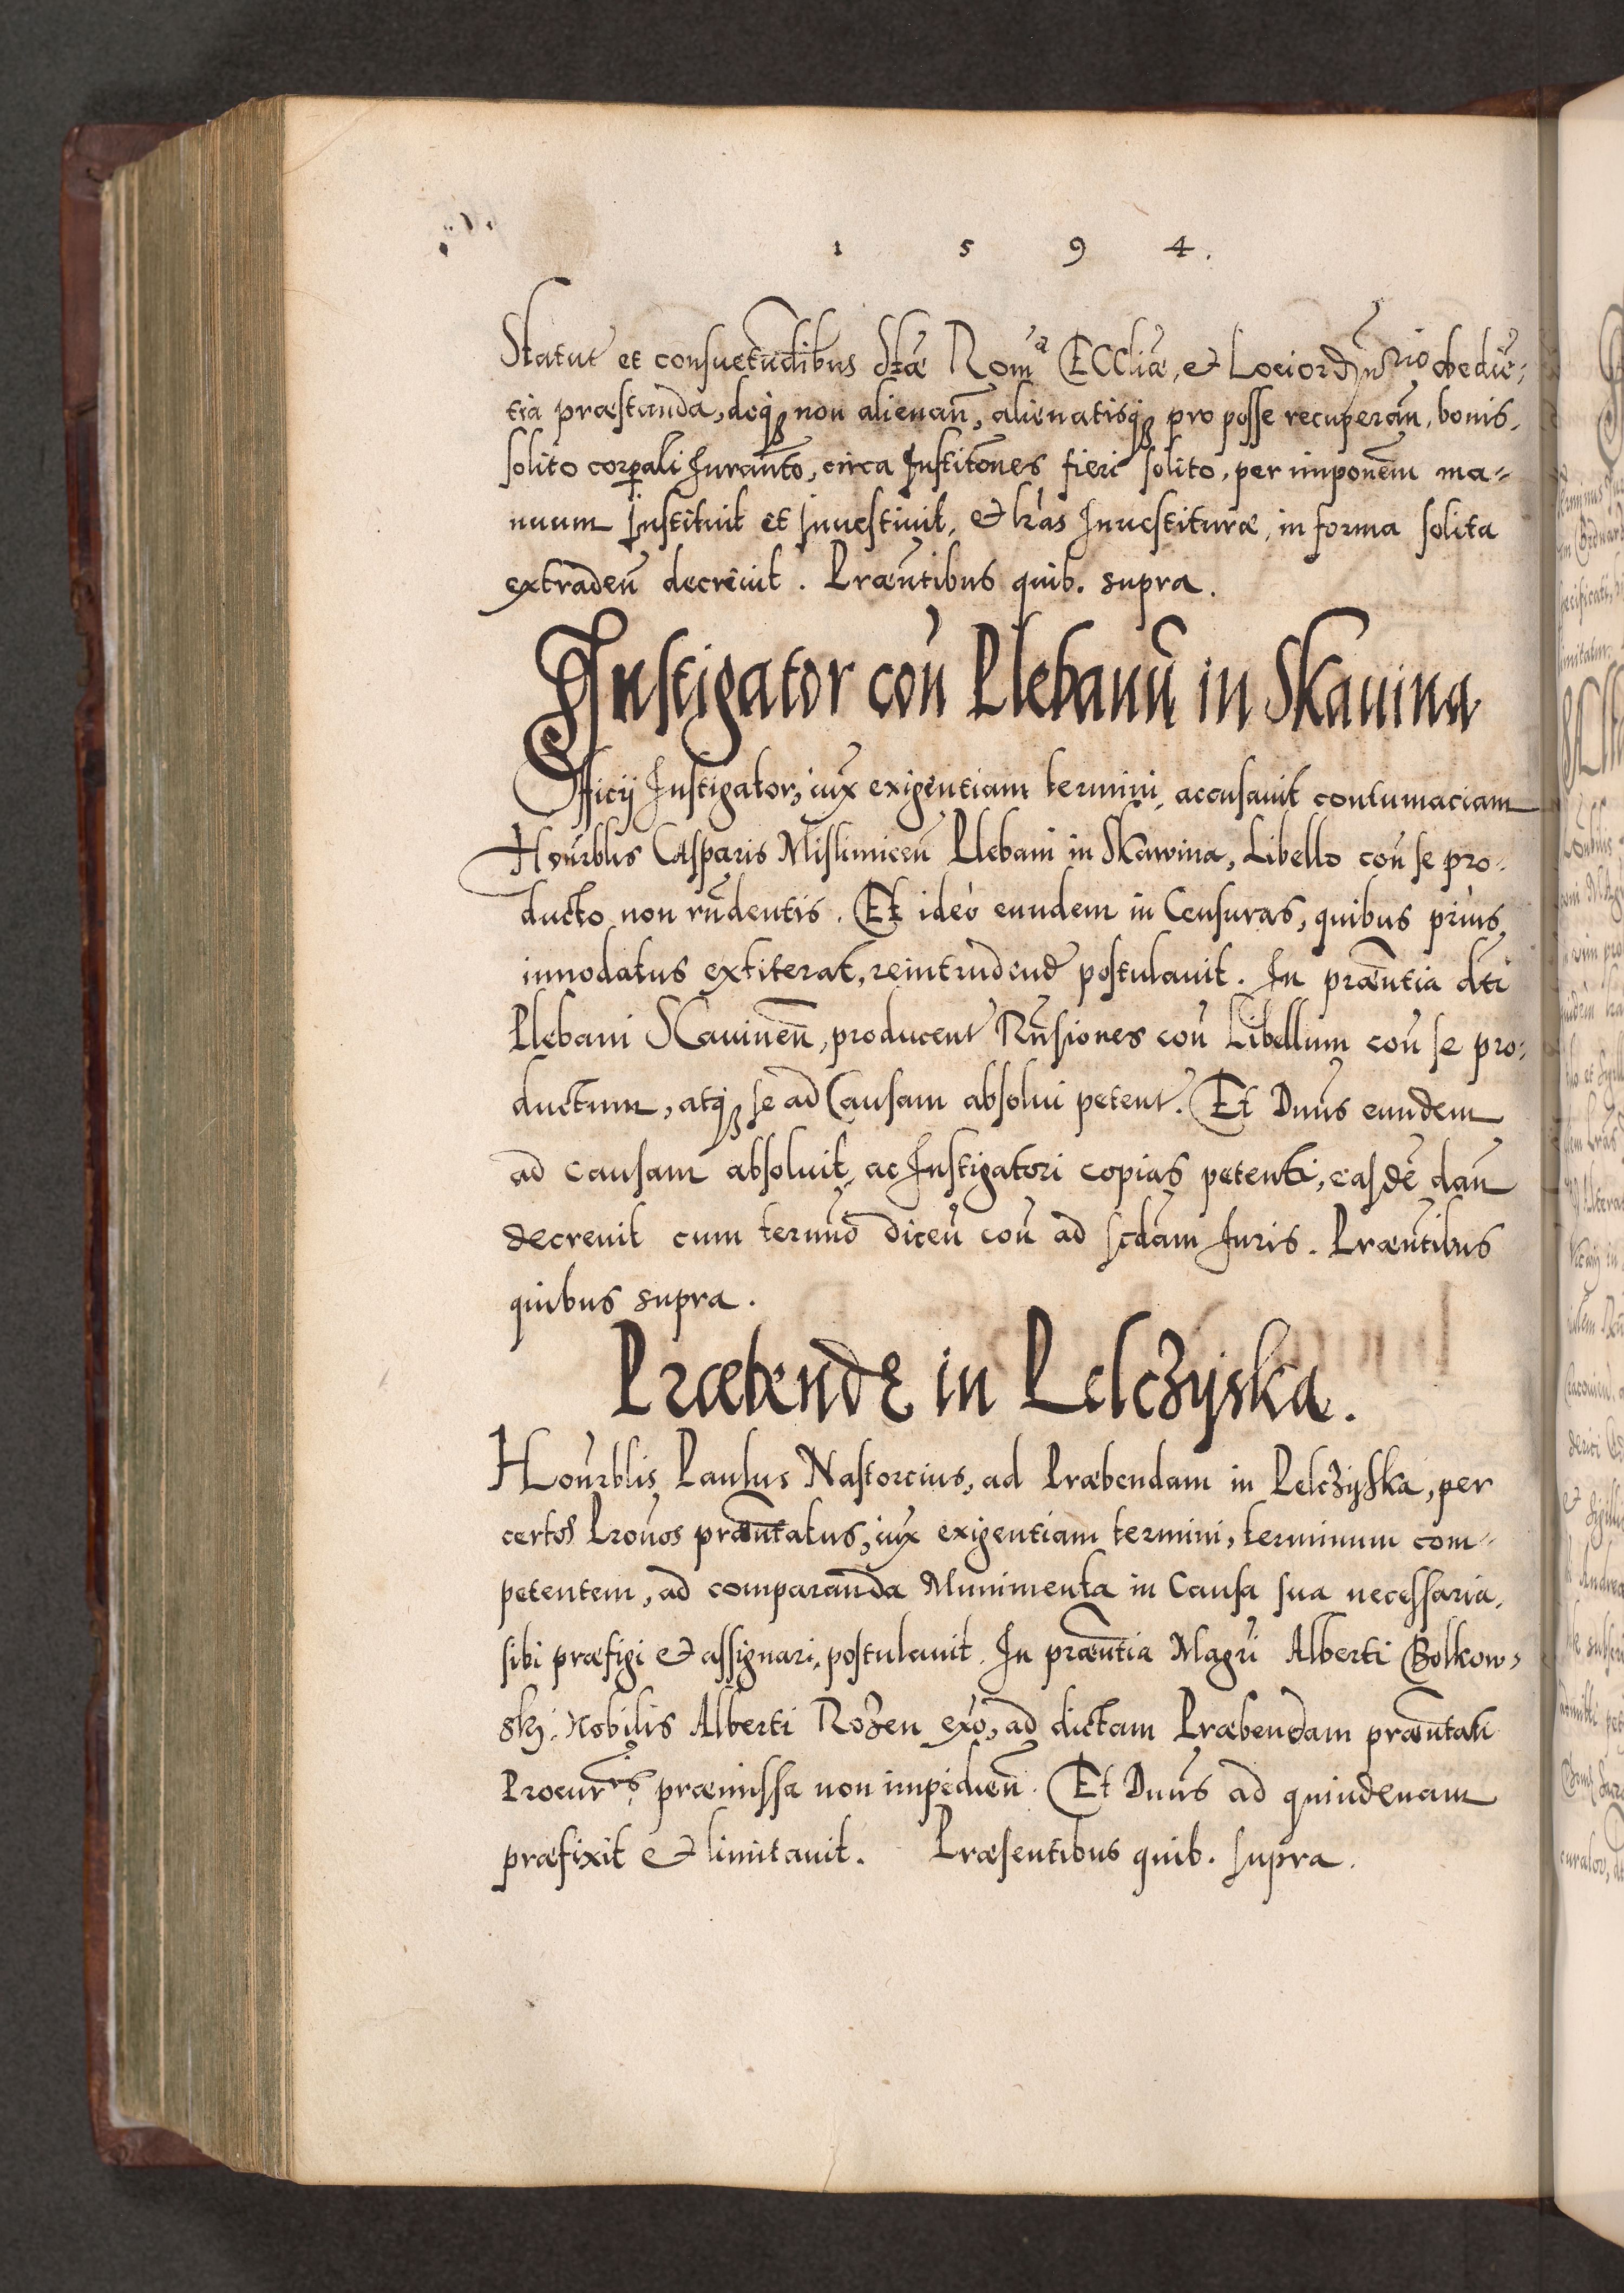 1 5 9 4.
Statut et consuetudibus Stæ Romᵃ Eccliæ, et Lociordinrio obedie-
tia præstanda, deq3 non alienan̄, alienatisq3 pro posse recuperan̄, bonis,
solito corporali Iuran̄to, circa Institones fieri solito, per imponem ma-
nuum instituit et inuestiuit, et lr̄as Inuestituræ, in forma solita
extraden̄ decreuit. Præn̄tibus quib. supra.
Instigator con̄ Plebanū in Skauina
Officij Instigator, iux exigentiam termini, accusauit contumaciam
Honrblis Casparis Mislimicen̄ Plebani in Skawina, Libello con̄ se pro-
ducto non rn̄dentis. Et ideò eundem in Censuras, quibus prius,
innodatus extiterat, reintrudend postulauit. In præn̄tia dti
Plebani Skauinen̄, producent Rn̄siones con̄ Libellum con̄ se pro-
ductum, atq3 se ad Causam absolui petent. Et Dnus eundem
ad causam absoluit, ac Instigatori copias petenti, easdē dan̄
decreuit cum termno dicen̄ con̄ ad scdam Iuris. Præn̄tibus
quibus supra.
Præbendæ in Pelczyska.
Honrblis Paulus Nastorcius, ad Præbendam in Pelczyska, per
certos Pronos præn̄tatus, iux exigentiam termini, terminum com-
petentem, ad comparanda Munimenta in Causa sua necessaria,
sibi præfigi et assignari, postulauit. In præn̄tia Magri Alberti Bolkow-
skj. Nobilis Alberti Rozen exo, ad dictam Præbendam præn̄tati
Procurrs præmissa non impedien̄. Et Dnus ad quindenam
præfixit et limitauit. Præsentibus quib. supra.